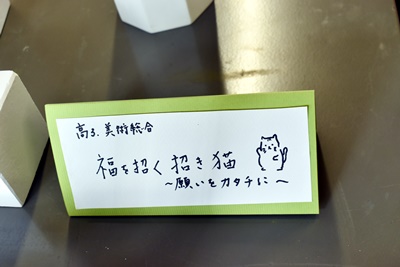 高3.美術総合
福を招く招き猫
～願いをカタチに～